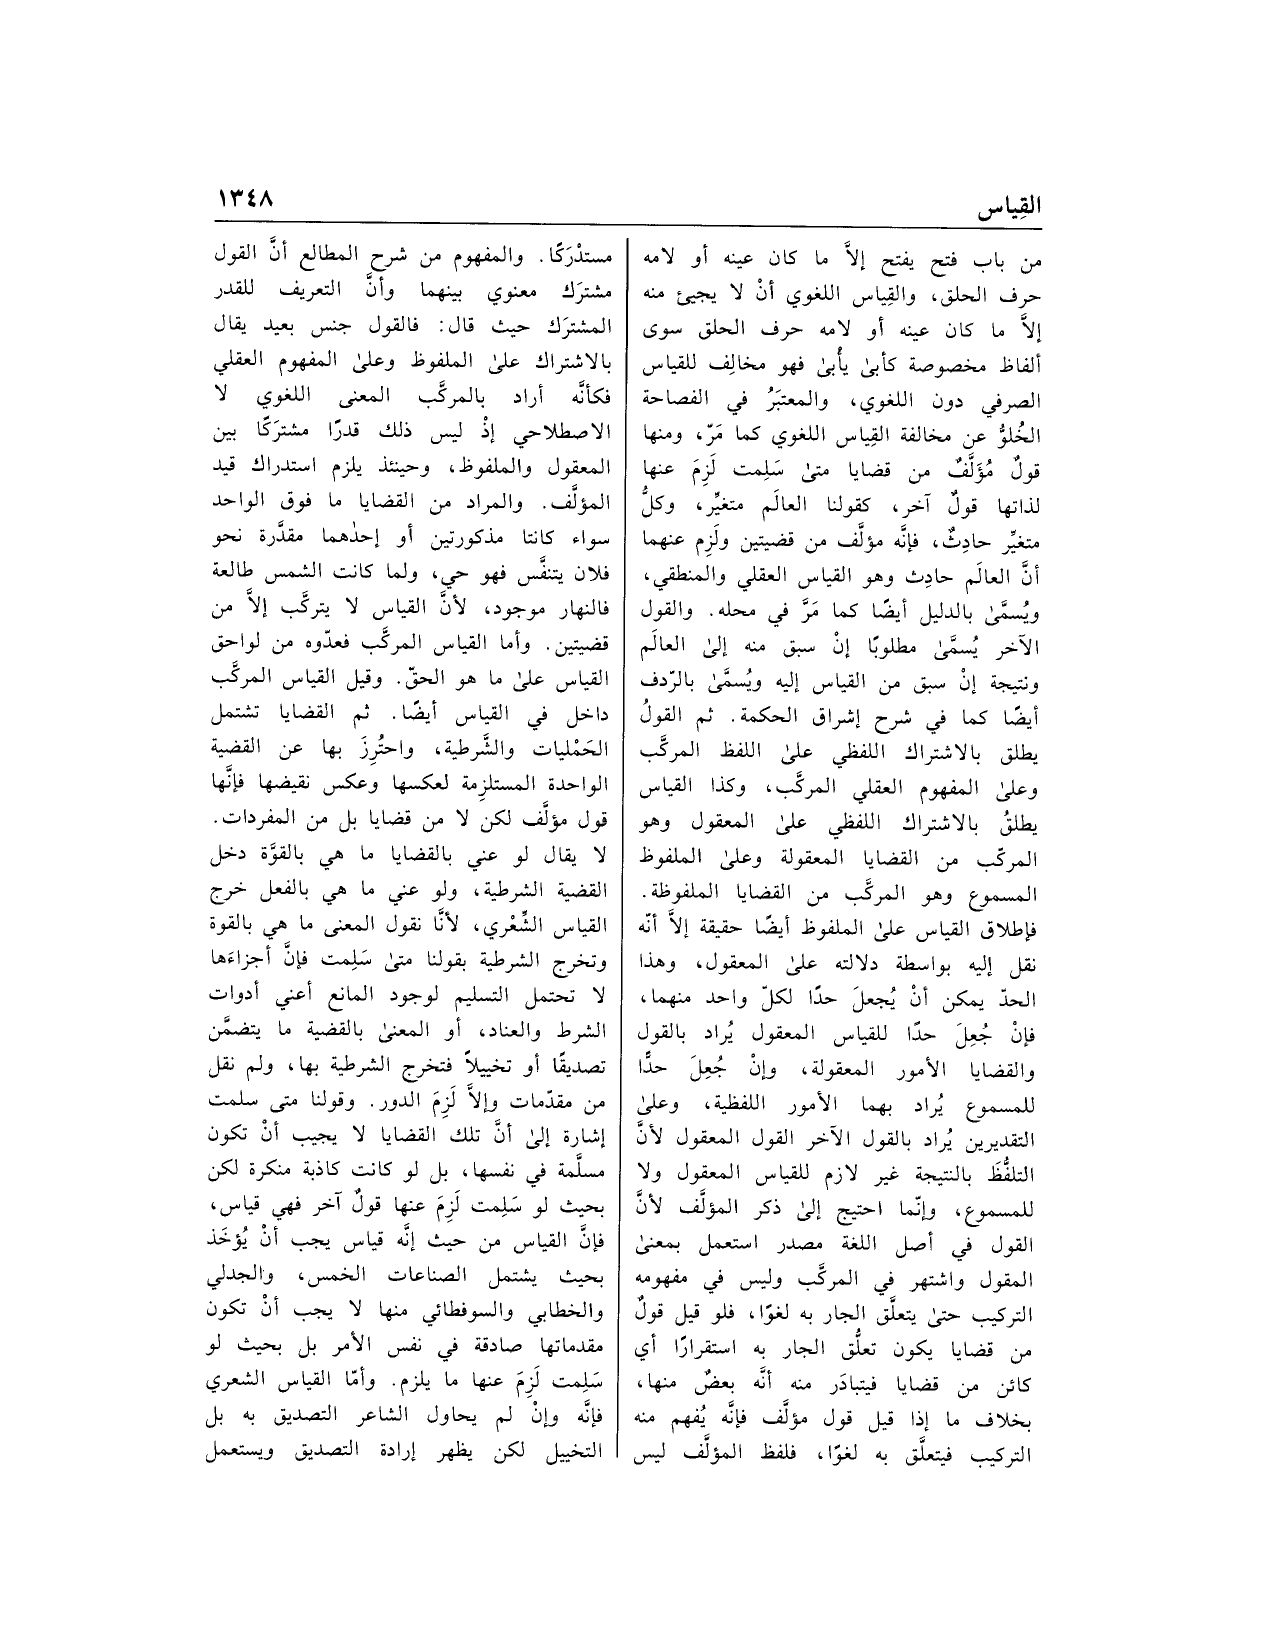 القِياس
١٣٤٨
من باب فتح يفتح إلاَّ ما كان عينه أو لامه
حرف الحلق، والقِياس اللغوي أنْ لا يجيئ منه
إلاَّ ما كان عينه أو لامه حرف الحلق سوى
ألفاظ مخصوصة كأبىٰ يأبىٰ فهو مخالِف للقياس
الصرفي دون اللغوي، والمعتبَرُ في الفصاحة
الخُلوُّ عن مخالفة القِياس اللغوي كما مَرّ، ومنها
قولٌ مُؤَلَّفٌ من قضايا متىٰ سَلِمت لَزِمَ عنها
لذاتها قولٌ آخر، كقولنا العالَم متغيِّر، وكلُّ
متغيِّر حادِثٌ، فإنَّه مؤلَّف من قضيتين ولَزِم عنهما
أنَّ العالَم حادِث وهو القياس العقلي والمنطقي،
ويُسمَّىٰ بالدليل أيضًا كما مَرَّ في محله. والقول
الآخر يُسمَّىٰ مطلوبًا إنْ سبق منه إلىٰ العالَم
ونتيجة إنْ سبق من القياس إليه ويُسمَّىٰ بالرّدف
أيضًا كما في شرح إشراق الحكمة. ثم القولُ
يطلق بالاشتراك اللفظي علىٰ اللفظ المركَّب
وعلىٰ المفهوم العقلي المركَّب، وكذا القياس
يطلقُ بالاشتراك اللفظي علىٰ المعقول وهو
المركّب من القضايا المعقولة وعلىٰ الملفوظ
المسموع وهو المركَّب من القضايا الملفوظة.
فإطلاق القياس علىٰ الملفوظ أيضًا حقيقة إلاَّ أنّه
نقل إليه بواسطة دلالته علىٰ المعقول، وهذا
الحدّ يمكن أنْ يُجعلَ حدًا لكلّ واحد منهما،
فإنْ جُعِلَ حدًا للقياس المعقول يُراد بالقول
والقضايا الأمور المعقولة، وإنْ جُعِلَ حدًّا
للمسموع يُراد بهما الأمور اللفظية، وعلىٰ
التقديرين يُراد بالقول الآخر القول المعقول لأنَّ
التلفُّظَ بالنتيجة غير لازم للقياس المعقول ولا
للمسموع، وإنّما احتيج إلىٰ ذكر المؤلَّف لأنَّ
القول في أصل اللغة مصدر استعمل بمعنىٰ
المقول واشتهر في المركَّب وليس في مفهومه
التركيب حتىٰ يتعلَّق الجار به لغوًا، فلو قيل قولٌ
من قضايا يكون تعلُّق الجار به استقرارًا أي
كائن من قضايا فيتبادَر منه أنَّه بعضٌ منها،
بخلاف ما إذا قيل قول مؤلَّف فإنَّه يُفهم منه
التركيب فيتعلَّق به لغوًا، فلفظ المؤلَّف ليس
مستدْرَكًا. والمفهوم من شرح المطالع أنَّ القول
مشترَك معنوي بينهما وأنَّ التعريف للقدر
المشترَك حيث قال: فالقول جنس بعيد يقال
بالاشتراك علىٰ الملفوظ وعلىٰ المفهوم العقلي
فكأنَّه أراد بالمركَّب المعنى اللغوي لا
الاصطلاحي إذْ ليس ذلك قدرًا مشترَكًا بين
المعقول والملفوظ، وحينئذ يلزم استدراك قيد
المؤلَّف. والمراد من القضايا ما فوق الواحد
سواء كانتا مذكورتين أو إحدٰهما مقدَّرة نحو
فلان يتنفَّس فهو حي، ولما كانت الشمس طالعة
فالنهار موجود، لأنَّ القياس لا يتركَّب إلاَّ من
قضيتين. وأما القياس المركَّب فعدّوه من لواحق
القياس علىٰ ما هو الحقّ. وقيل القياس المركَّب
داخل في القياس أيضًا. ثم القضايا تشتمل
الحَمْليات والشَّرطية، واحتُرِزَ بها عن القضية
الواحدة المستلزِمة لعكسها وعكس نقيضها فإنَّها
قول مؤلَّف لكن لا من قضايا بل من المفردات.
لا يقال لو عني بالقضايا ما هي بالقوَّة دخل
القضية الشرطية، ولو عني ما هي بالفعل خرج
القياس الشِّعْري، لأنَّا نقول المعنى ما هي بالقوة
وتخرج الشرطية بقولنا متىٰ سَلِمت فإنَّ أجزاءَها
لا تحتمل التسليم لوجود المانع أعني أدوات
الشرط والعناد، أو المعنىٰ بالقضية ما يتضمَّن
تصديقًا أو تخييلاً فتخرج الشرطية بها، ولم نقل
من مقدّمات وإلاَّ لَزِمَ الدور. وقولنا متى سلمت
إشارة إلىٰ أنَّ تلك القضايا لا يجيب أنْ تكون
مسلَّمة في نفسها، بل لو كانت كاذبة منكرة لكن
بحيث لو سَلِمت لَزِمَ عنها قولٌ آخر فهي قياس،
فإنَّ القياس من حيث إنَّه قياس يجب أنْ يُؤخَذ
بحيث يشتمل الصناعات الخمس، والجدلي
والخطابي والسوفطائي منها لا يجب أنْ تكون
مقدماتها صادقة في نفس الأمر بل بحيث لو
سَلِمت لَزِمَ عنها ما يلزم. وأمّا القياس الشعري
فإنَّه وإنْ لم يحاول الشاعر التصديق به بل
التخييل لكن يظهر إرادة التصديق ويستعمل